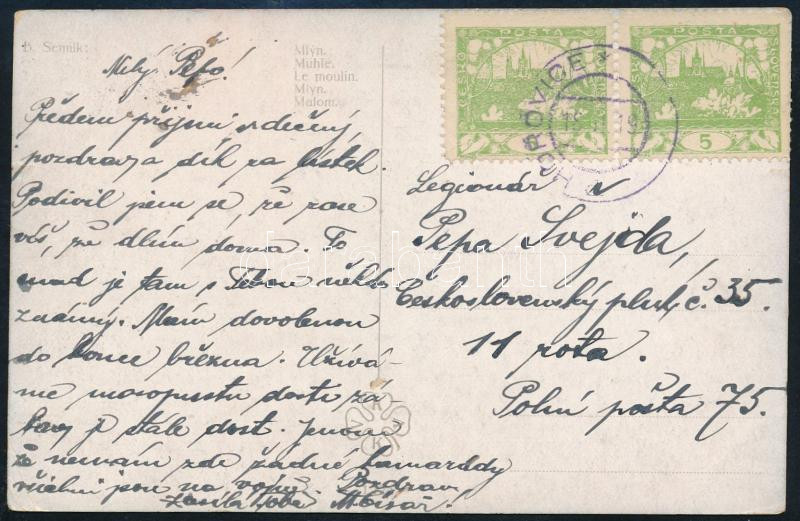 B. Semilk:
Mlýn.
Mühle.
Le moulin.
Mlyn.
Malom.
Milý Pepo!
Předem přijmi srdečný
pozdrav a dík za lístek.
Podivil jsem se, že zase
víš, že dlím doma. To
snad je tam s Tebou někdo
známý. Mám dovolenou
do konce března. Užívá-
me masopustu dosti zá-
bavy je stále dost. Jenom
že nemám zde žádné kamarády
všichni jsou na vojně. Pozdrav
zasílá Tobě
POSTA
POSTA
ČESKO
SLOVENSKÁ
5
HOŘOVICE
Legionár
Pepa Svejda,
Československý pluk č. 35.
11 rota.
Polní pošta 75.
darabanth